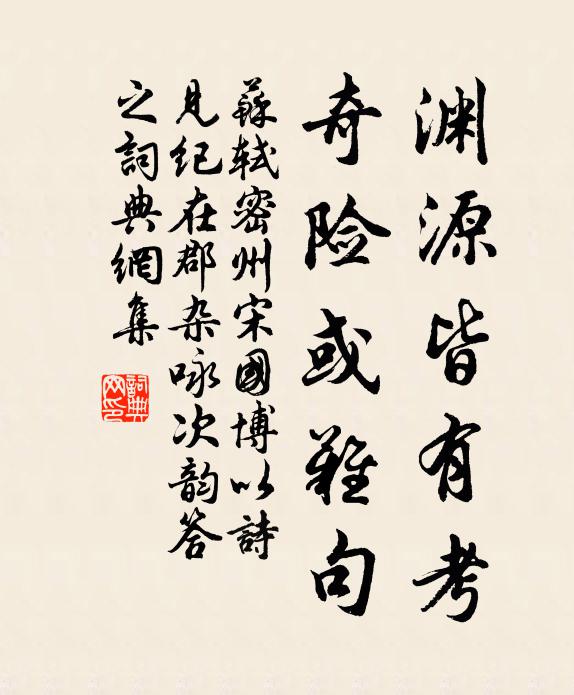 渊源皆有考
奇险或难句
蘇軾密州宋國博以詩
見纪在郡杂咏次韵答
之詞典網集
詞典
网印